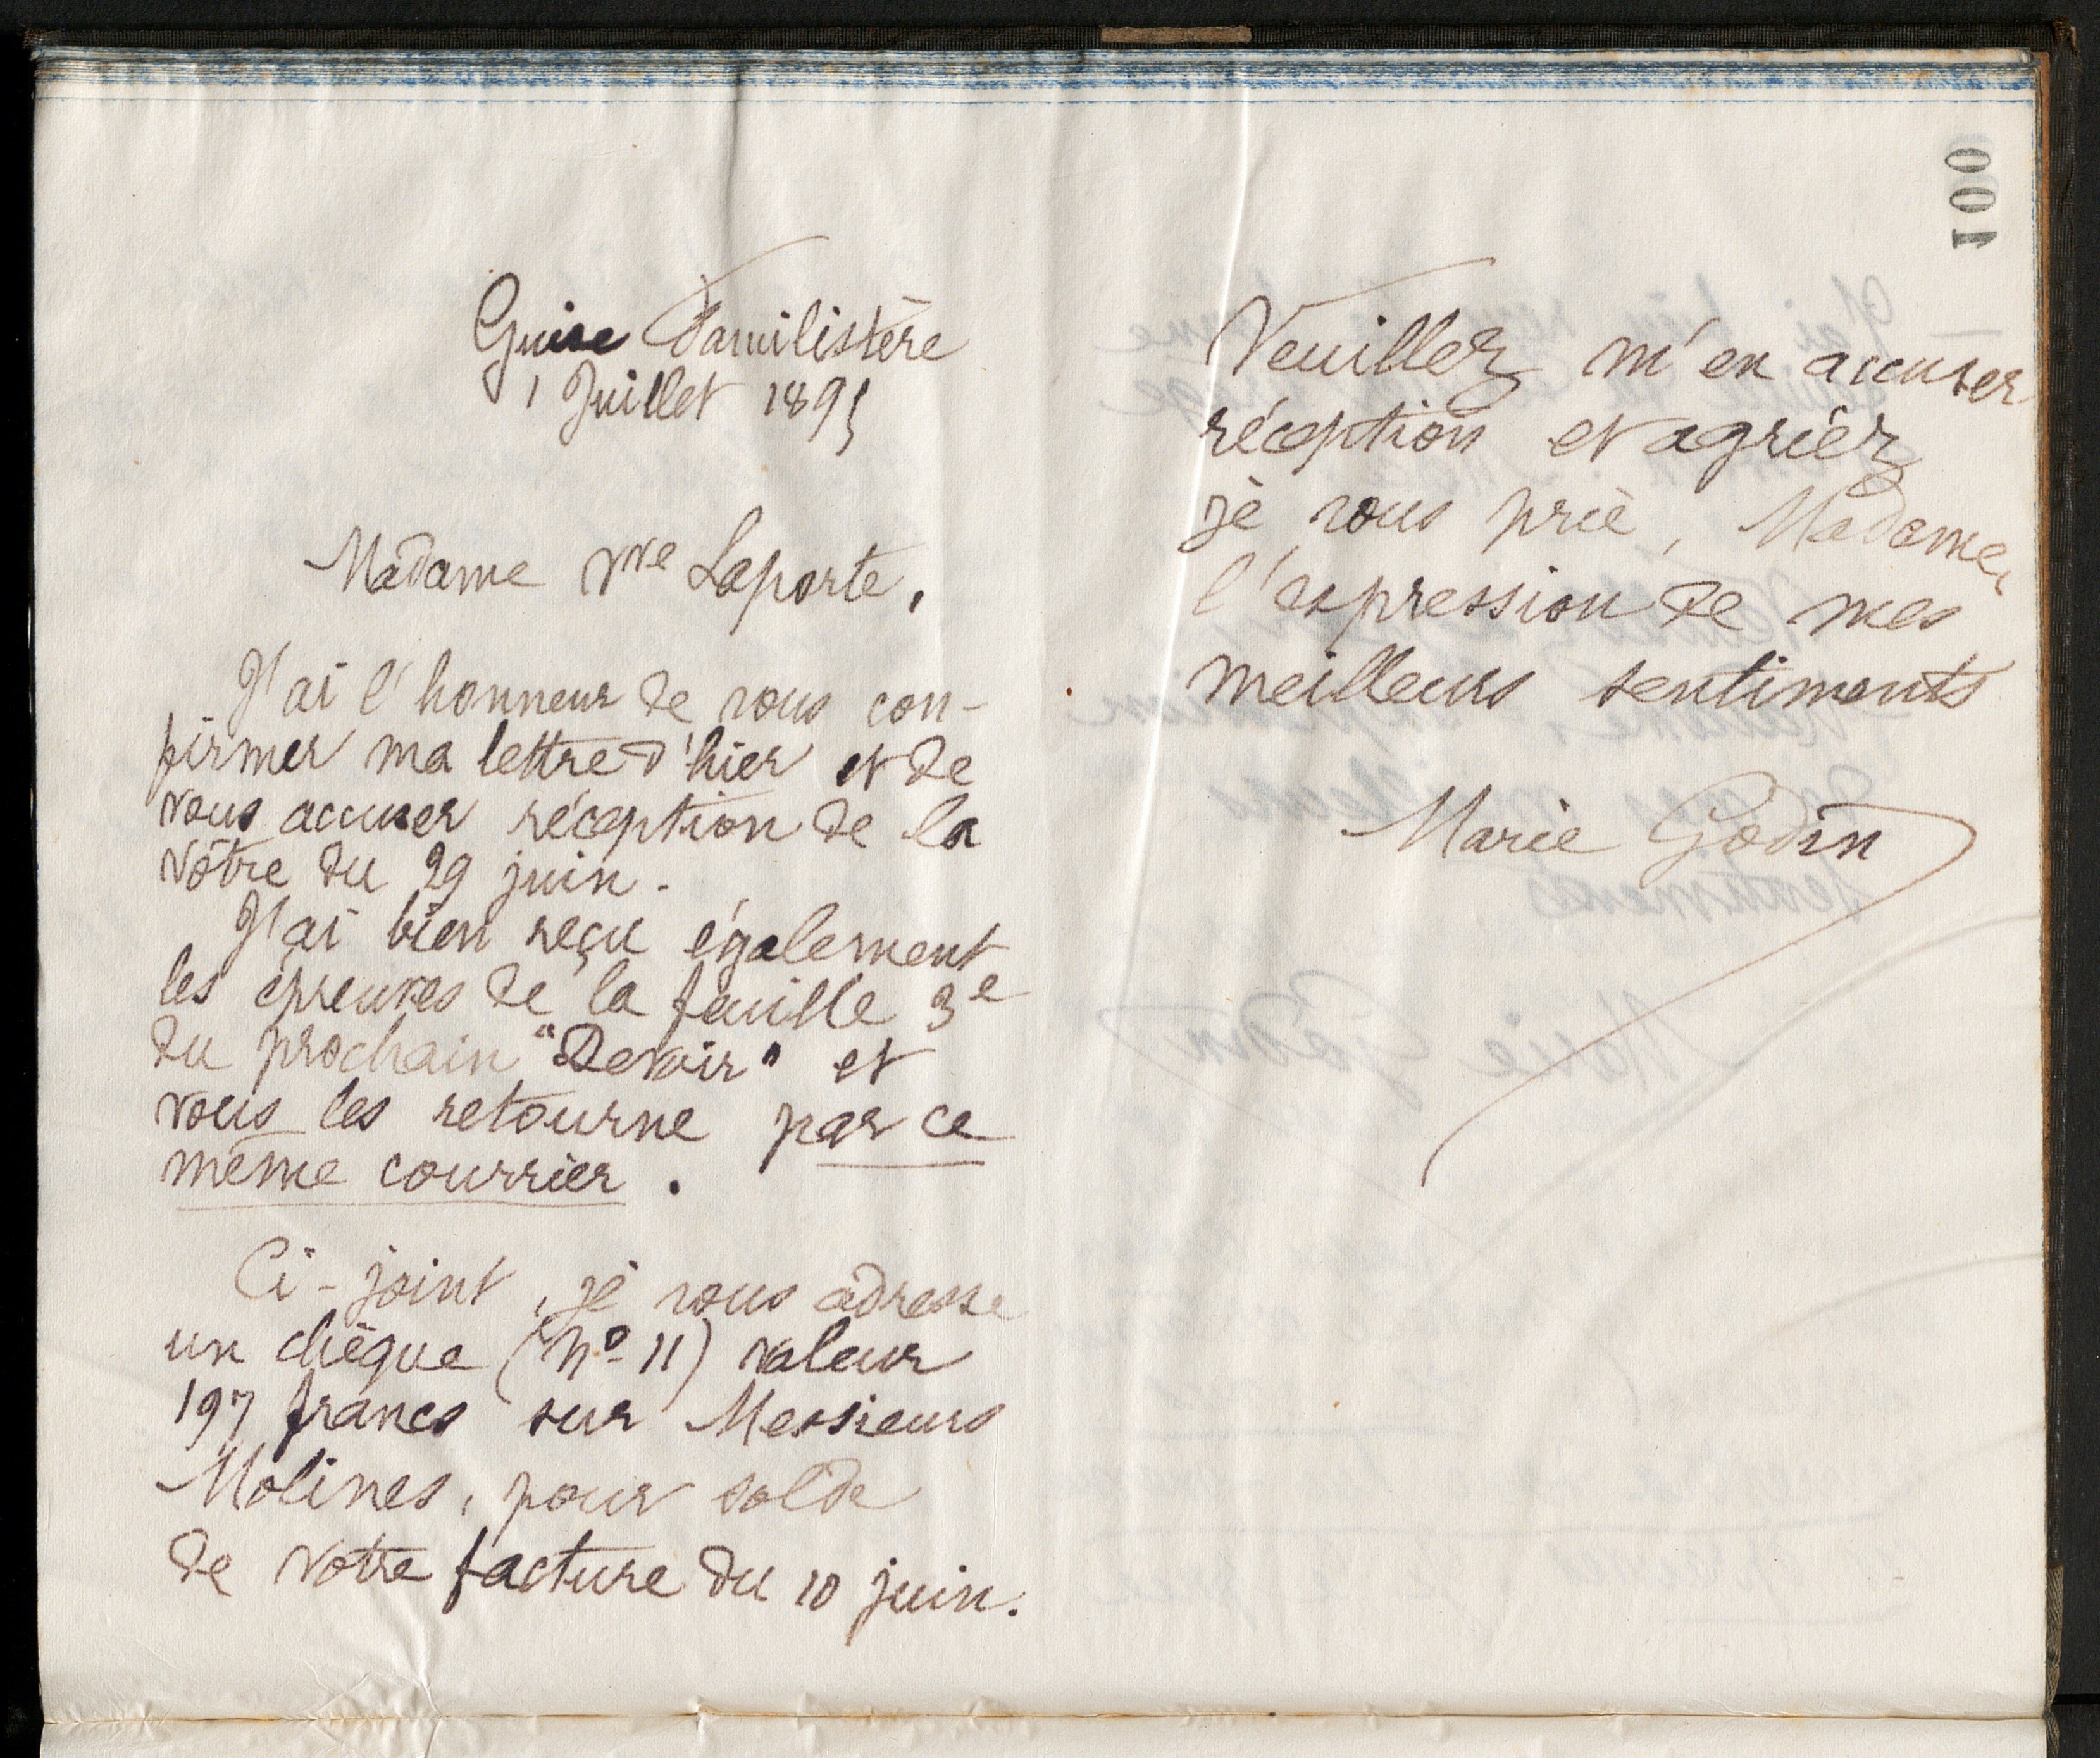 100
Guise Familistère
1 Juillet 1895
Madame Vve Laporte,
J'ai l'honneur de vous con-
firmer ma lettre d'hier et de
vous accuser réception de la
vôtre du 29 juin.
J'ai bien reçu également
les épreuves de la feuille 3e
du prochain "Devoir" et
vous les retourne par ce
même courrier.
Ci-joint, je vous adresse
un chèque (No 11) valeur
197 francs sur Messieurs
Molines, pour solde
de votre facture du 10 juin.
Veuillez m'en accuser
réception et agréer,
je vous prie, Madame,
l'expression de mes
meilleurs sentiments
Marie Godin